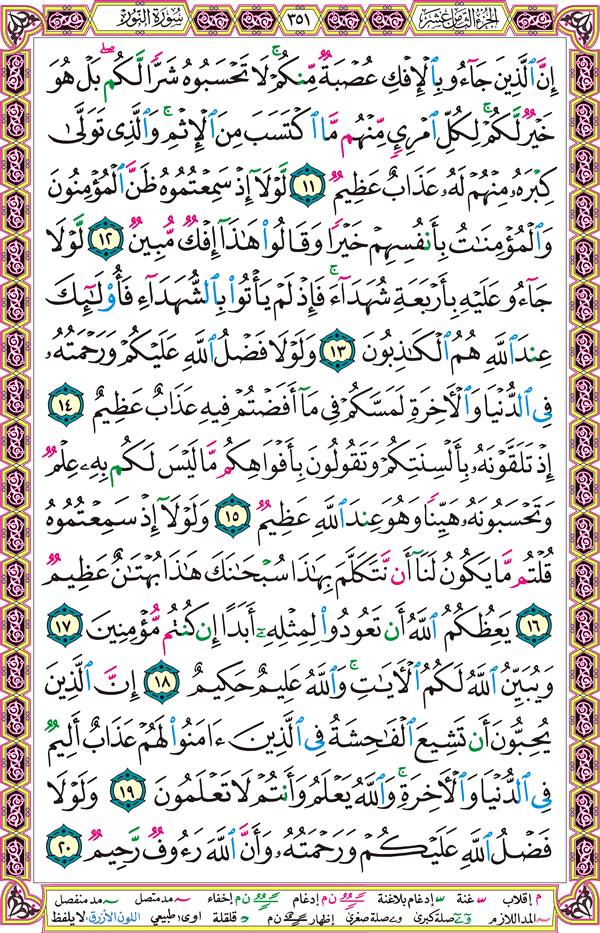 الجزء الثامن عشر ٣٥١ سورة النور
إِنَّ ٱلَّذِينَ جَآءُو بِٱلْإِفْكِ عُصْبَةٌ مِّنكُمْ ۚ لَا تَحْسَبُوهُ شَرًّا لَّكُم ۖ بَلْ هُوَ
خَيْرٌ لَّكُمْ ۚ لِكُلِّ ٱمْرِئٍ مِّنْهُم مَّا ٱكْتَسَبَ مِنَ ٱلْإِثْمِ ۚ وَٱلَّذِى تَوَلَّىٰ
كِبْرَهُۥ مِنْهُمْ لَهُۥ عَذَابٌ عَظِيمٌ ١١ لَّوْلَآ إِذْ سَمِعْتُمُوهُ ظَنَّ ٱلْمُؤْمِنُونَ
وَٱلْمُؤْمِنَٰتُ بِأَنفُسِهِمْ خَيْرًا وَقَالُوا۟ هَٰذَآ إِفْكٌ مُّبِينٌ ١٢ لَّوْلَا
جَآءُو عَلَيْهِ بِأَرْبَعَةِ شُهَدَآءَ ۚ فَإِذْ لَمْ يَأْتُوا۟ بِٱلشُّهَدَآءِ فَأُو۟لَٰٓئِكَ
عِندَ ٱللَّهِ هُمُ ٱلْكَٰذِبُونَ ١٣ وَلَوْلَا فَضْلُ ٱللَّهِ عَلَيْكُمْ وَرَحْمَتُهُۥ
فِى ٱلدُّنْيَا وَٱلْءَاخِرَةِ لَمَسَّكُمْ فِى مَآ أَفَضْتُمْ فِيهِ عَذَابٌ عَظِيمٌ ١٤
إِذْ تَلَقَّوْنَهُۥ بِأَلْسِنَتِكُمْ وَتَقُولُونَ بِأَفْوَاهِكُم مَّا لَيْسَ لَكُم بِهِۦ عِلْمٌ
وَتَحْسَبُونَهُۥ هَيِّنًا وَهُوَ عِندَ ٱللَّهِ عَظِيمٌ ١٥ وَلَوْلَآ إِذْ سَمِعْتُمُوهُ
قُلْتُم مَّا يَكُونُ لَنَآ أَن نَّتَكَلَّمَ بِهَٰذَا سُبْحَٰنَكَ هَٰذَا بُهْتَٰنٌ عَظِيمٌ
١٦ يَعِظُكُمُ ٱللَّهُ أَن تَعُودُوا۟ لِمِثْلِهِۦٓ أَبَدًا إِن كُنتُم مُّؤْمِنِينَ ١٧
وَيُبَيِّنُ ٱللَّهُ لَكُمُ ٱلْءَايَٰتِ ۚ وَٱللَّهُ عَلِيمٌ حَكِيمٌ ١٨ إِنَّ ٱلَّذِينَ
يُحِبُّونَ أَن تَشِيعَ ٱلْفَٰحِشَةُ فِى ٱلَّذِينَ ءَامَنُوا۟ لَهُمْ عَذَابٌ أَلِيمٌ
فِى ٱلدُّنْيَا وَٱلْءَاخِرَةِ ۚ وَٱللَّهُ يَعْلَمُ وَأَنتُمْ لَا تَعْلَمُونَ ١٩ وَلَوْلَا
فَضْلُ ٱللَّهِ عَلَيْكُمْ وَرَحْمَتُهُۥ وَأَنَّ ٱللَّهَ رَءُوفٌ رَّحِيمٌ ٢٠
م إقلاب غنة إدغام بلاغنة ن م إدغام ن م إخفاء مد متصل مد منفصل
المد اللازم صلة كبرى صلة صغرى إظهار ن م قلقلة اوى طبيعي اللون الأزرق: لا يلفظ